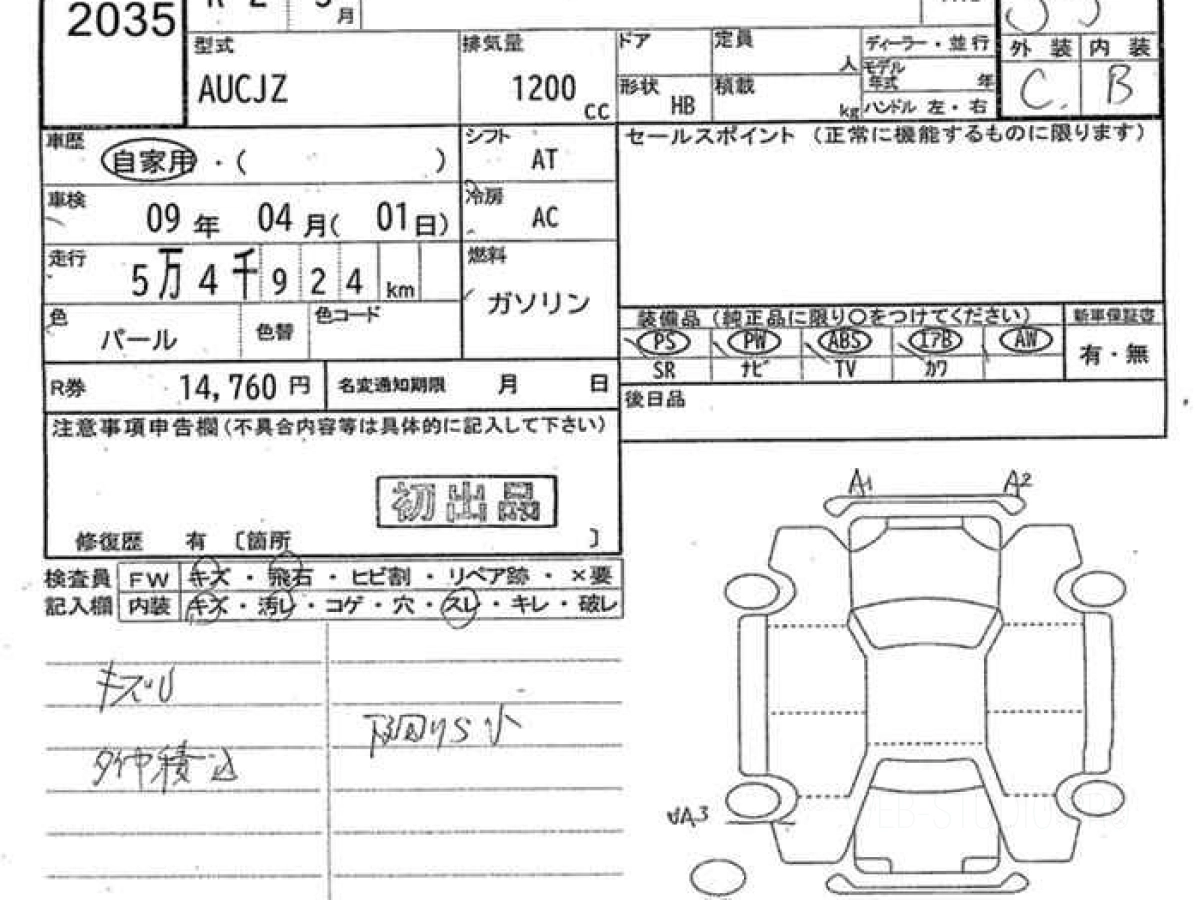 2035
月
型式
AUCJZ
排気量
1200
cc
ドア
定員
人
ディーラー・並行
形状
HB
積載
kg
モデル年式
年
ハンドル 左・右
外装 内装
C. B
車歴
自家用・( )
シフト
AT
セールスポイント (正常に機能するものに限ります)
車検
09年 04月( 01日)
冷房
AC
走行
5万4千924km
燃料
ガソリン
色
パール
色替
色コード
装備品 (純正品に限り○をつけてください)
新車保証書
PS PW ABS エアB AW
有・無
SR ナビ TV カワ
R券
14,760 円
名変通知期限 月 日
後日品
注意事項申告欄(不具合内容等は具体的に記入して下さい)
初出品
修復歴 有 〔箇所 〕
A1 A2
検査員 FW キズ・飛石・ヒビ割・リペア跡・×要
記入欄 内装 キズ・汚レ・コゲ・穴・スレ・キレ・破レ
キズU
下回りS小
タイヤ積込
A3